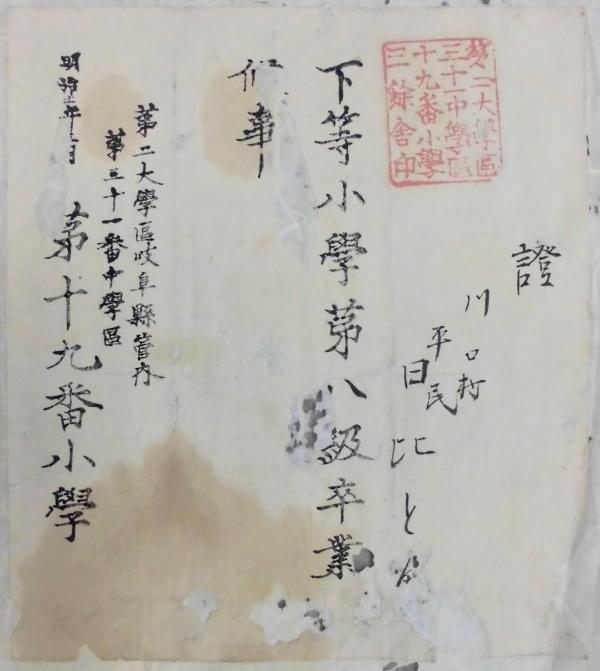 證
川口村
平民
日比と
下等小學第八級卒業
候事
第二大學區岐阜縣管内
第三十一番中學區
第十九番小學
明治 年 月
第二大學區
三十一中學區
十九番小學
三餘舎印